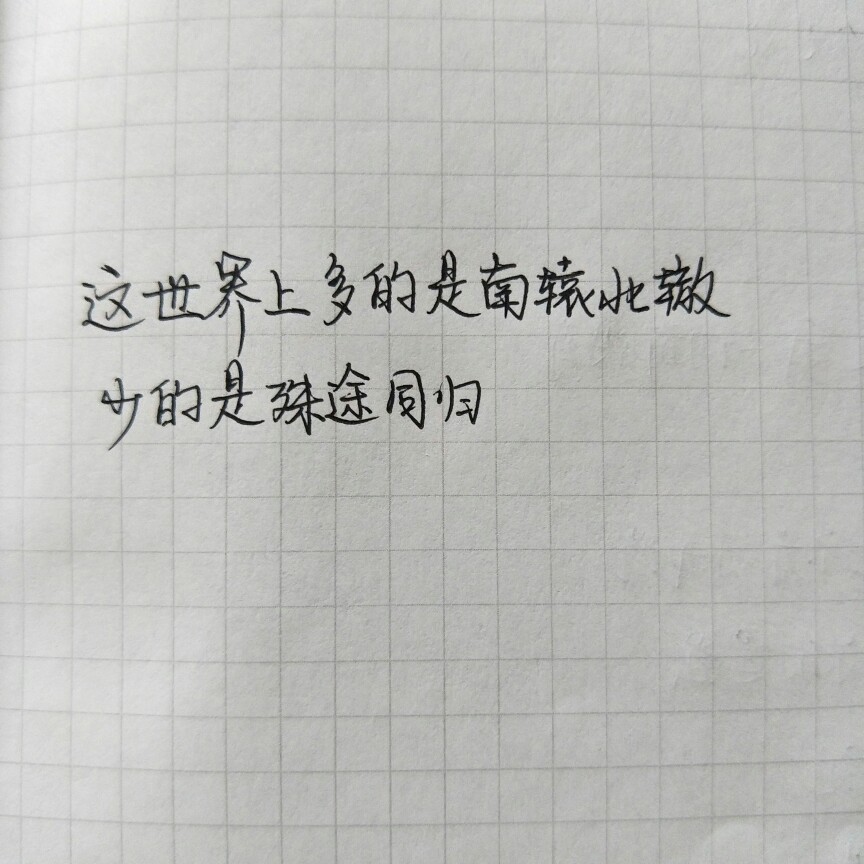 这世界上多的是南辕北辙
少的是殊途同归